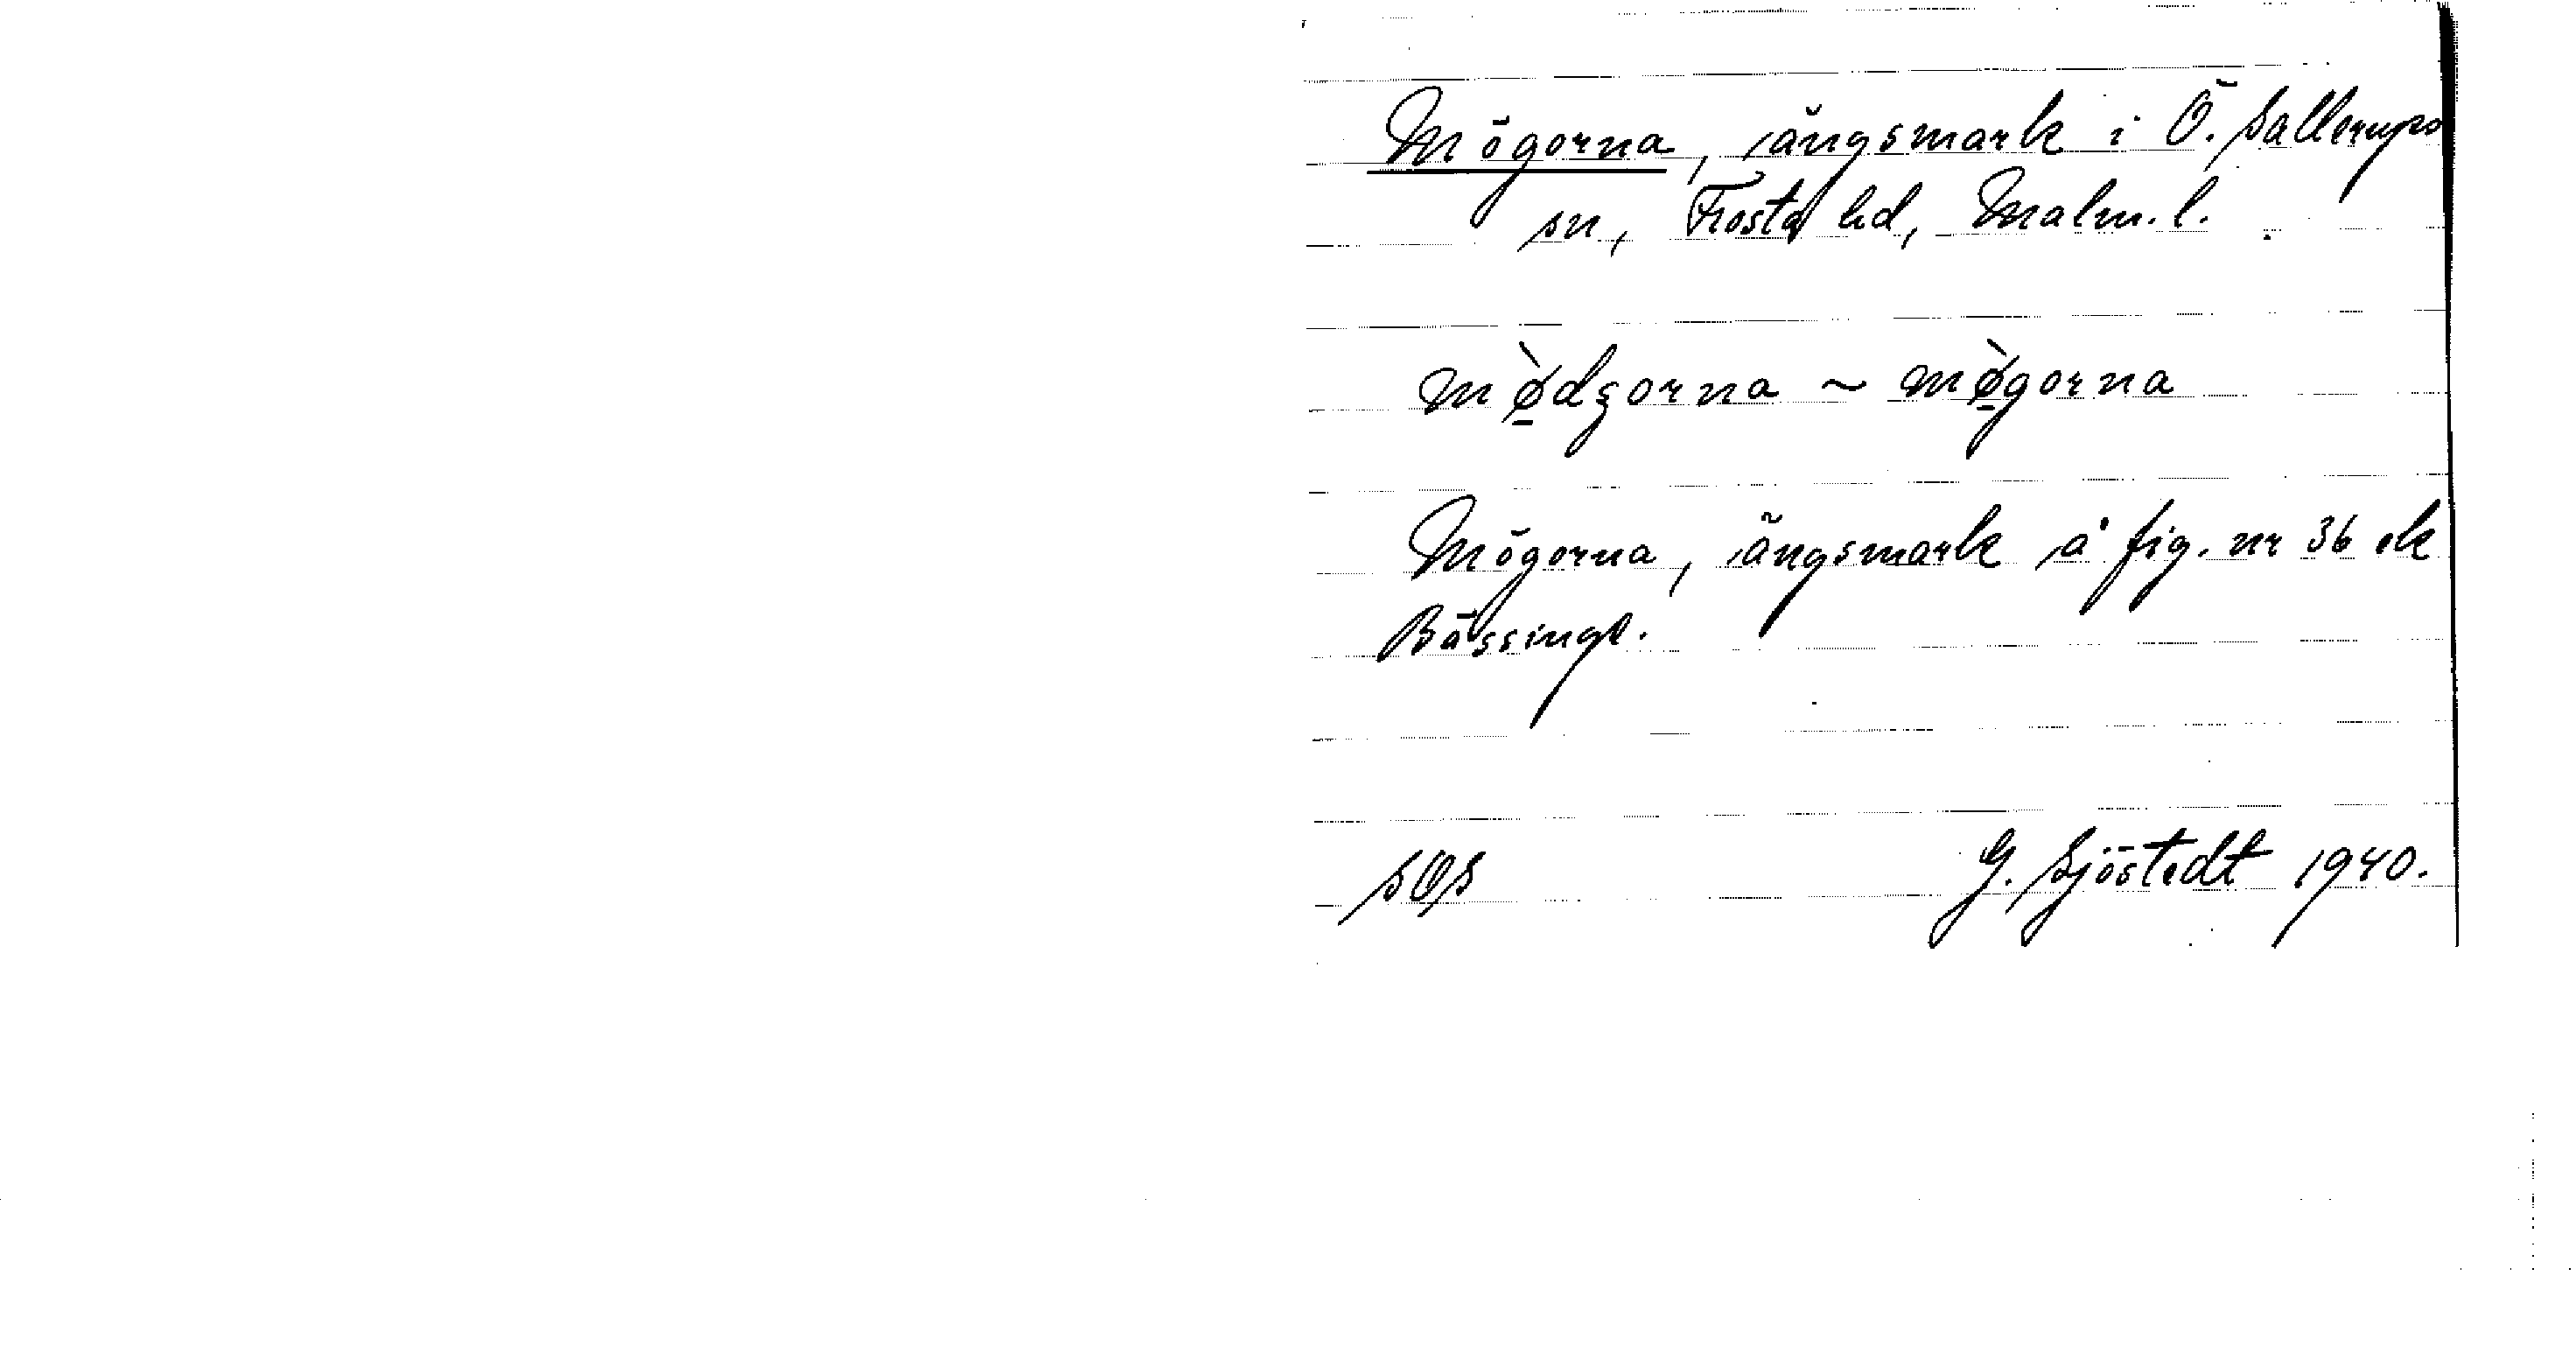 Mögorna, ängsmark i Ö. Sallerups
sn, Frosta hd, Malm. l.
mø̀dʒorna ~ mø̀gorna
Mögorna, ängsmark å fig. nr 36 ek
Bässingt.
SOS G. Sjöstedt 1940.